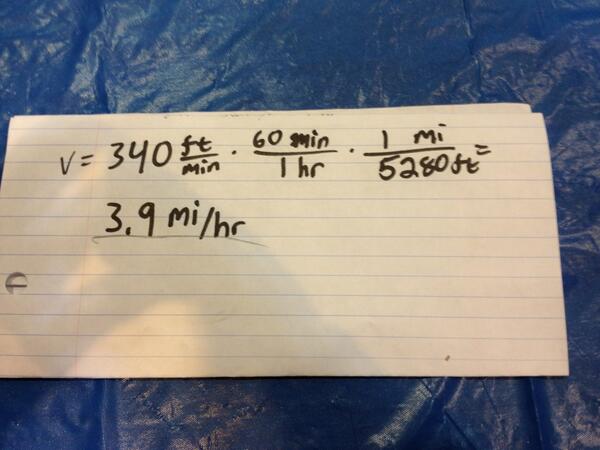 v = 340 ft/min · 60 min/1 hr · 1 mi/5280 ft =
3.9 mi/hr